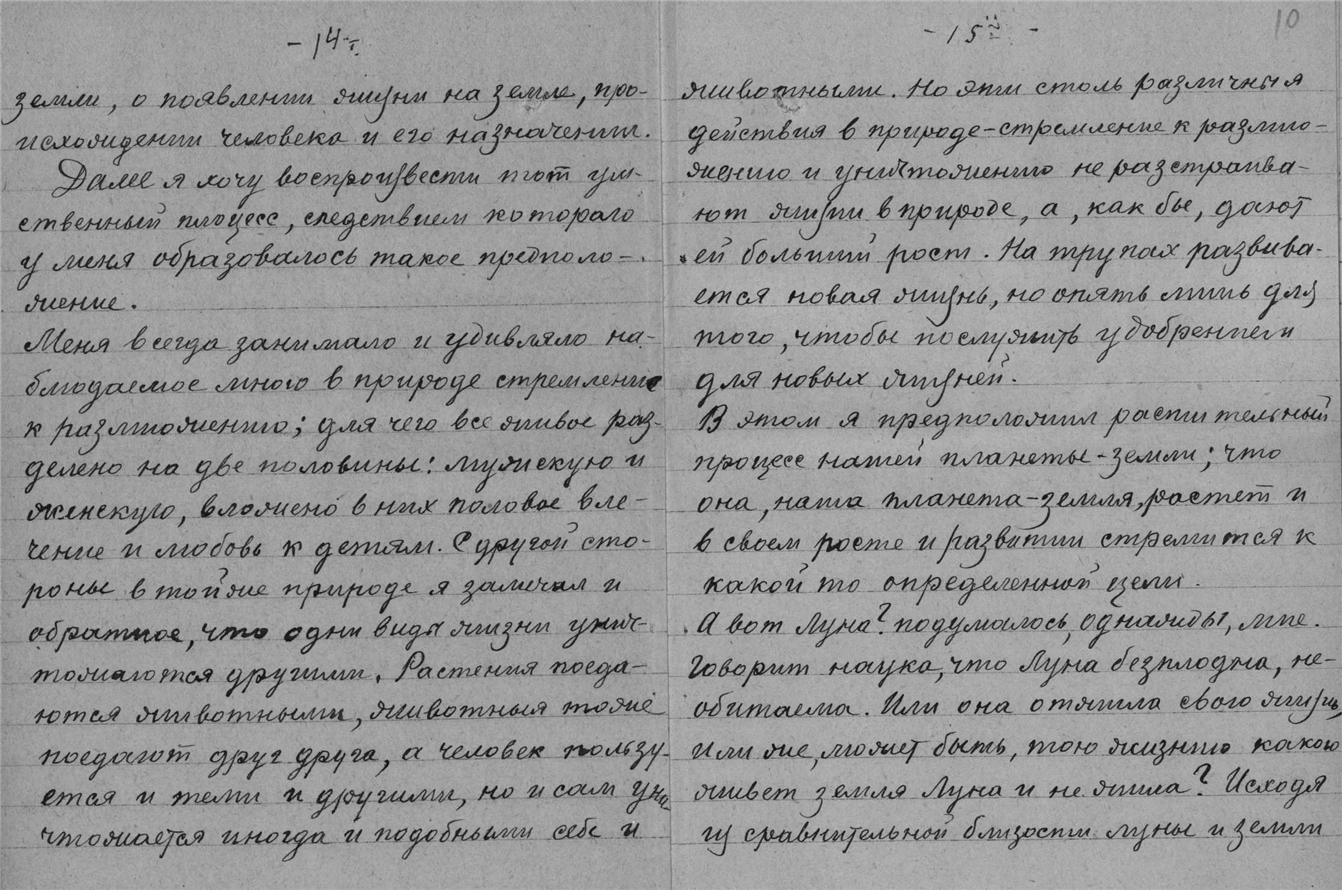 - 14 -
земли, о появлении жизни на земле, про-
исхождении человека и его назначении.
Далее я хочу воспроизвести тот ум-
ственный процесс, следствием котораго
у меня образовалось такое предполо-
жение.
Меня всегда занимало и удивляло на-
блюдаемое мною в природе стремление
к размножению; для чего все живое раз-
делено на две половины: мужскую и
женскую, вложено в них половое вле-
чение и любовь к детям. С другой сто-
роны в той же природе я замечал и
обратное, что одни виды жизни унич-
тожаются другими. Растения поеда-
ются животными, животныя тоже
поедают друг друга, а человек пользу-
ется и теми и другими, но и сам уни
чтожается иногда и подобными себе и
- 15 -
10
животными. Но эти столь различныя
действия в природе-стремление к размно-
жению и уничтожению не разстраива-
ют жизни в природе, а, как бы, дают
ей больший рост. На трупах развива-
ется новая жизнь, но опять лишь для
того, чтобы послужить удобрением
для новых жизней.
В этом я предположил растительный
процесс нашей планеты-земли; что
она, наша планета-земля, растет и
в своем росте и развитии стремится к
какой то определенной цели.
А вот Луна? подумалось, однажды, мне.
Говорит наука, что Луна безплодна, не-
обитаема. Или она отжила свою жизнь,
или же, может быть, тою жизнию какою
живет земля Луна и не жила? Исходя
из сравнительной близости луны и земли